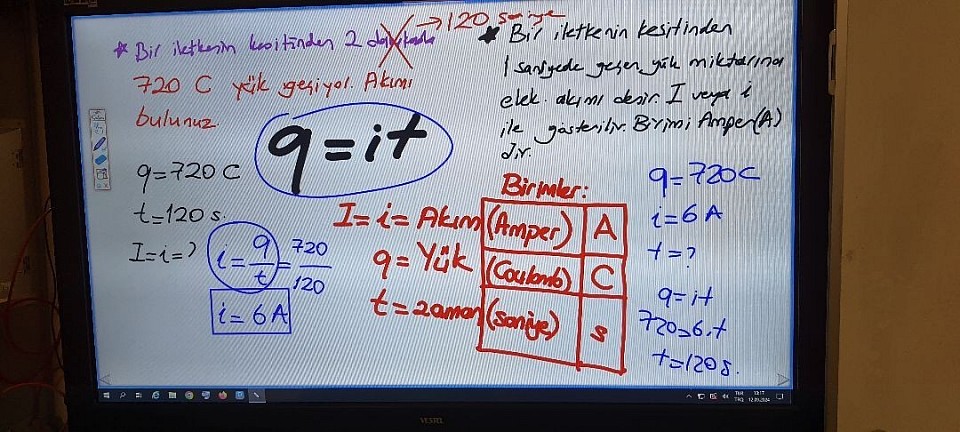 * Bir iletkenin kesitinden 2 dakikada → 120 saniye
720 C yük geçiyor. Akımı
bulunuz
q = 720 C
t = 120 s.
I = i = ?
i = q/t = 720/120
i = 6 A
q = it
* Bir iletkenin kesitinden
1 saniyede geçen yük miktarına
elek. akımı denir. I veya i
ile gösterilir. Birimi Amper(A)
dır.
Birimler:
I = i = Akım (Amper) A
q = Yük (Coulomb) C
t = zaman (saniye) s
q = 720 C
i = 6 A
t = ?
q = it
720 = 6.t
t = 120 s.
VESTEL